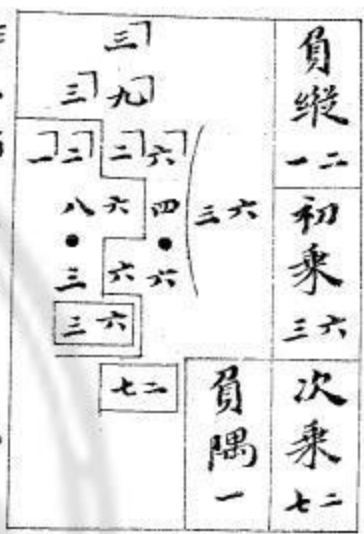 負縱
一二
初乘
三六
次乘
七二
負隅
一
三
三九
一二二六
八六四
三六
三六六
三六
七二